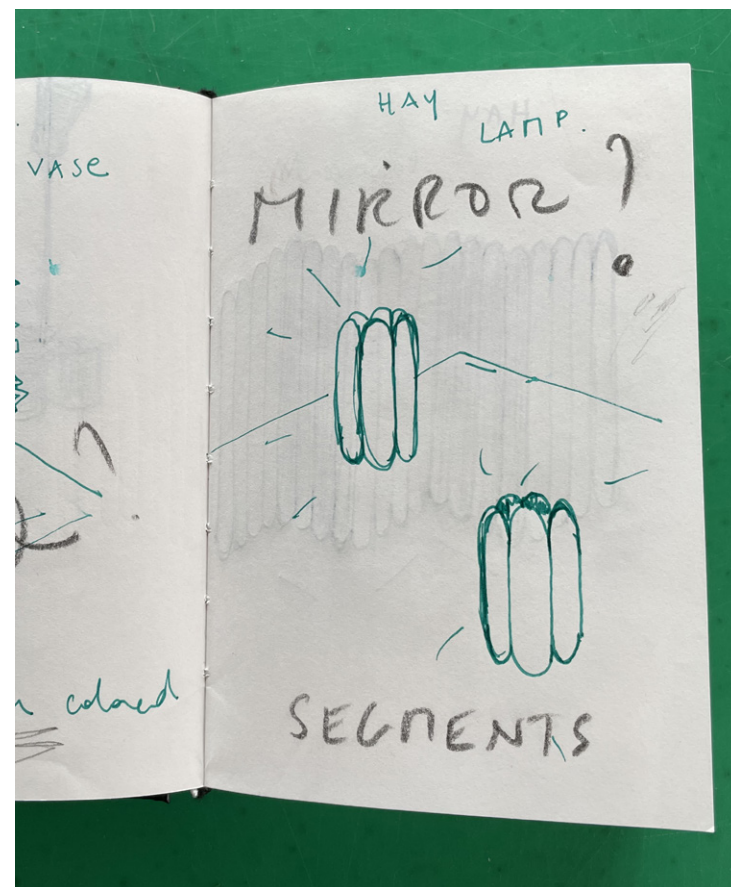 VASE
colored
HAY
LAMP.
MIRROR?
SEGMENTS